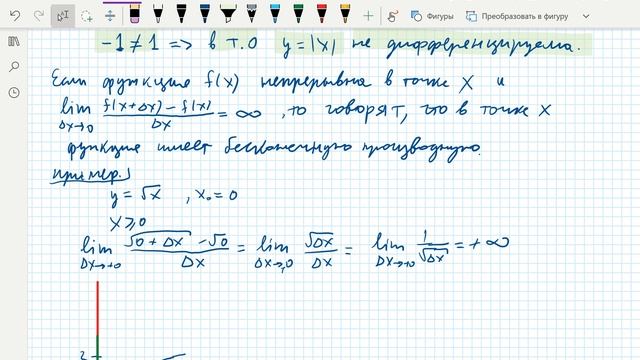 Фигуры Преобразовать в фигуру
-1 ≠ 1 => в т.0 y = |x| не дифференцируема.
Если функция f(x) непрерывна в точке x и
lim Δx→0 f(x+Δx) - f(x) / Δx = ∞ , то говорят, что в точке x
функция имеет бесконечную производную.
пример.
y = √x , x₀ = 0
x ≥ 0
lim Δx→+0 √0 + Δx - √0 / Δx = lim Δx→0 √Δx / Δx = lim Δx→+0 1 / √Δx = + ∞
2